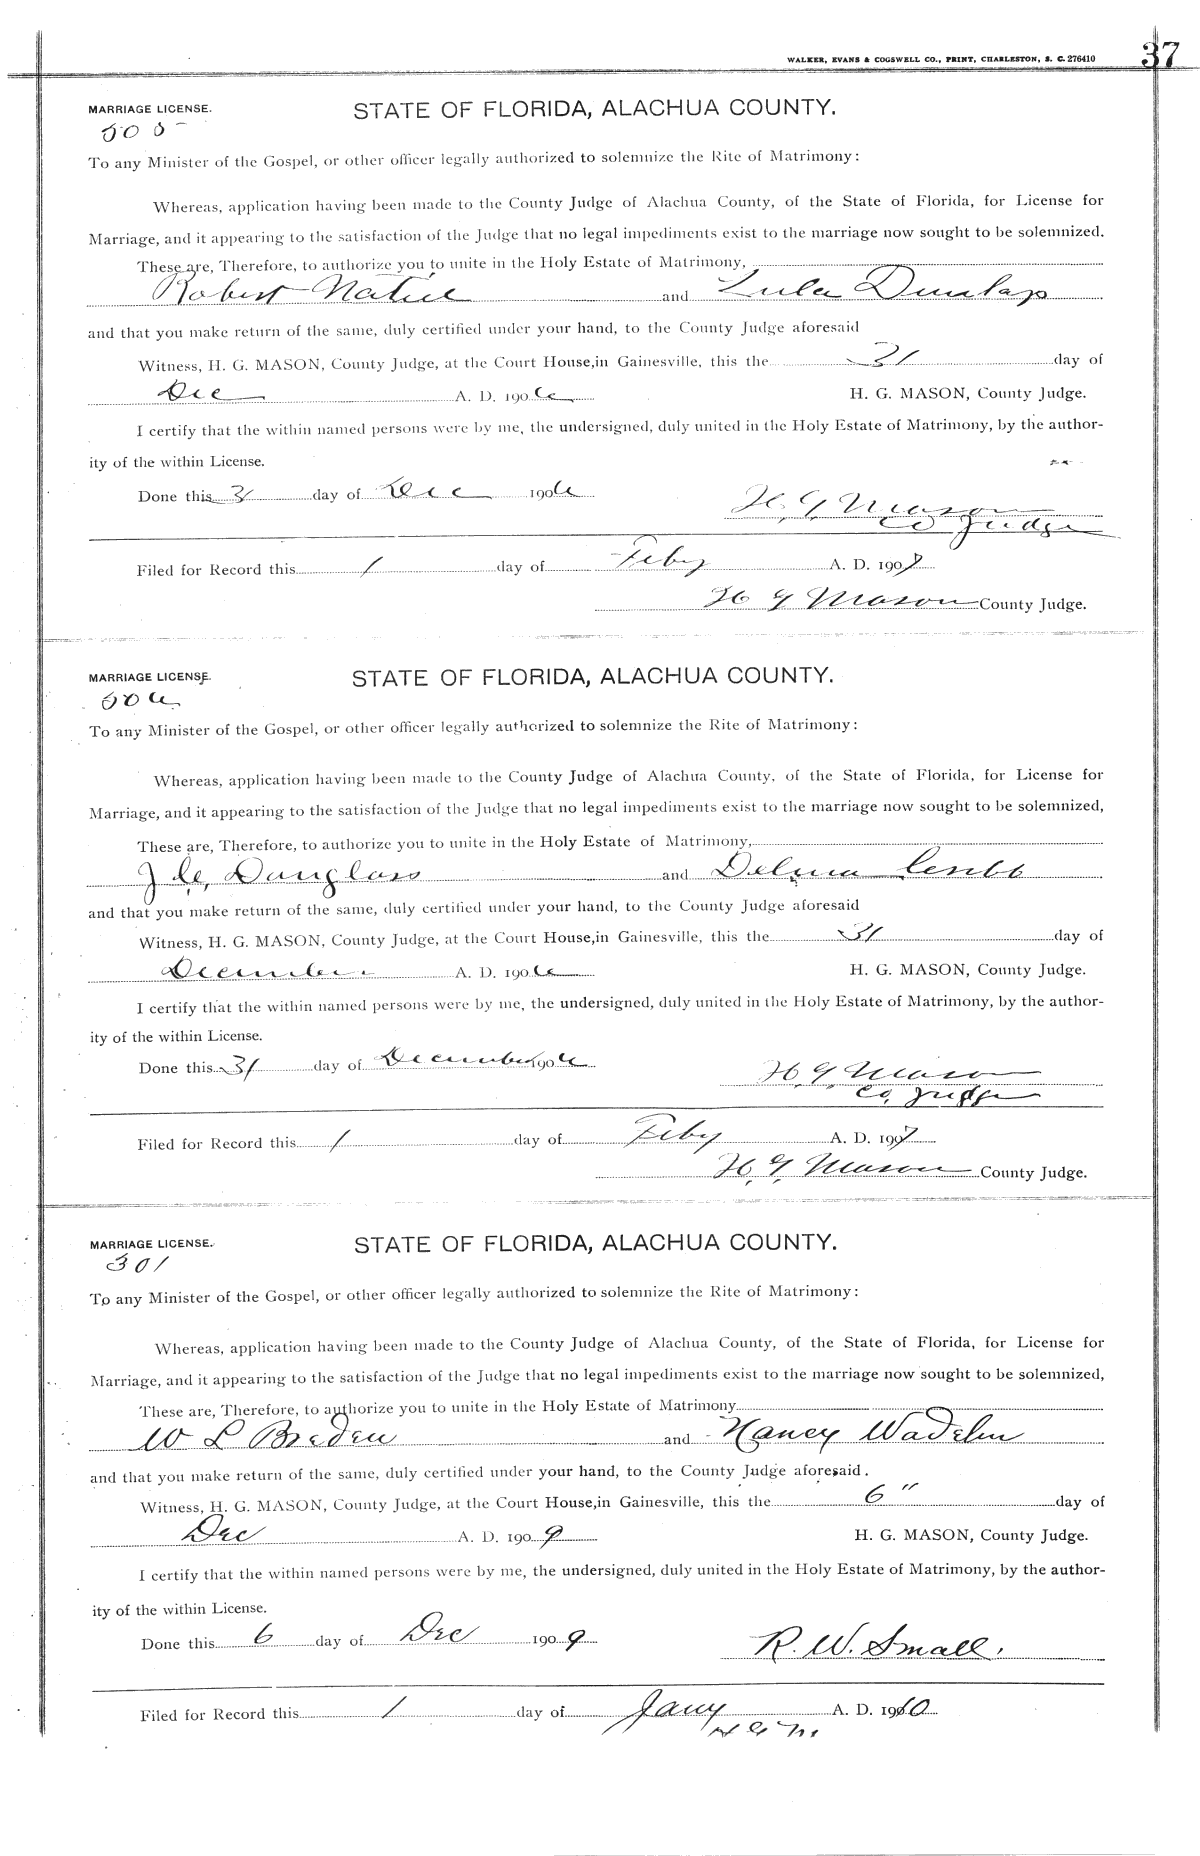 WALKER, EVANS & COGSWELL CO., PRINT, CHARLESTON, S. C. 276410
37
MARRIAGE LICENSE.
STATE OF FLORIDA, ALACHUA COUNTY.
505
To any Minister of the Gospel, or other officer legally authorized to solemnize the Rite of Matrimony:
Whereas, application having been made to the County Judge of Alachua County, of the State of Florida, for License for
Marriage, and it appearing to the satisfaction of the Judge that no legal impediments exist to the marriage now sought to be solemnized.
These are, Therefore, to authorize you to unite in the Holy Estate of Matrimony,
Robert and Lula Dunlap
and that you make return of the same, duly certified under your hand, to the County Judge aforesaid
Witness, H. G. MASON, County Judge, at the Court House, in Gainesville, this the 31 day of
Dec A. D. 1906 H. G. MASON, County Judge.
I certify that the within named persons were by me, the undersigned, duly united in the Holy Estate of Matrimony, by the author-
ity of the within License.
Done this 31 day of Dec 1906 H. G. Mason
Co Judge
Filed for Record this 1 day of Feby A. D. 1907
H G Mason County Judge.
MARRIAGE LICENSE.
STATE OF FLORIDA, ALACHUA COUNTY.
506
To any Minister of the Gospel, or other officer legally authorized to solemnize the Rite of Matrimony:
Whereas, application having been made to the County Judge of Alachua County, of the State of Florida, for License for
Marriage, and it appearing to the satisfaction of the Judge that no legal impediments exist to the marriage now sought to be solemnized,
These are, Therefore, to authorize you to unite in the Holy Estate of Matrimony,
Douglass and
and that you make return of the same, duly certified under your hand, to the County Judge aforesaid
Witness, H. G. MASON, County Judge, at the Court House, in Gainesville, this the 31 day of
December A. D. 1906 H. G. MASON, County Judge.
I certify that the within named persons were by me, the undersigned, duly united in the Holy Estate of Matrimony, by the author-
ity of the within License.
Done this 31 day of December 1906 H. G. Mason
Co, Judge
Filed for Record this 1 day of Feby A. D. 1907
H. G. Mason County Judge.
MARRIAGE LICENSE.
STATE OF FLORIDA, ALACHUA COUNTY.
301
To any Minister of the Gospel, or other officer legally authorized to solemnize the Rite of Matrimony:
Whereas, application having been made to the County Judge of Alachua County, of the State of Florida, for License for
Marriage, and it appearing to the satisfaction of the Judge that no legal impediments exist to the marriage now sought to be solemnized,
These are, Therefore, to authorize you to unite in the Holy Estate of Matrimony
W L Breden and Nancy
and that you make return of the same, duly certified under your hand, to the County Judge aforesaid.
Witness, H. G. MASON, County Judge, at the Court House, in Gainesville, this the 6" day of
Dec A. D. 1909 H. G. MASON, County Judge.
I certify that the within named persons were by me, the undersigned, duly united in the Holy Estate of Matrimony, by the author-
ity of the within License.
Done this 6 day of Dec 1909 R. W. Small.
Filed for Record this 1 day of Jany A. D. 1910
H G M